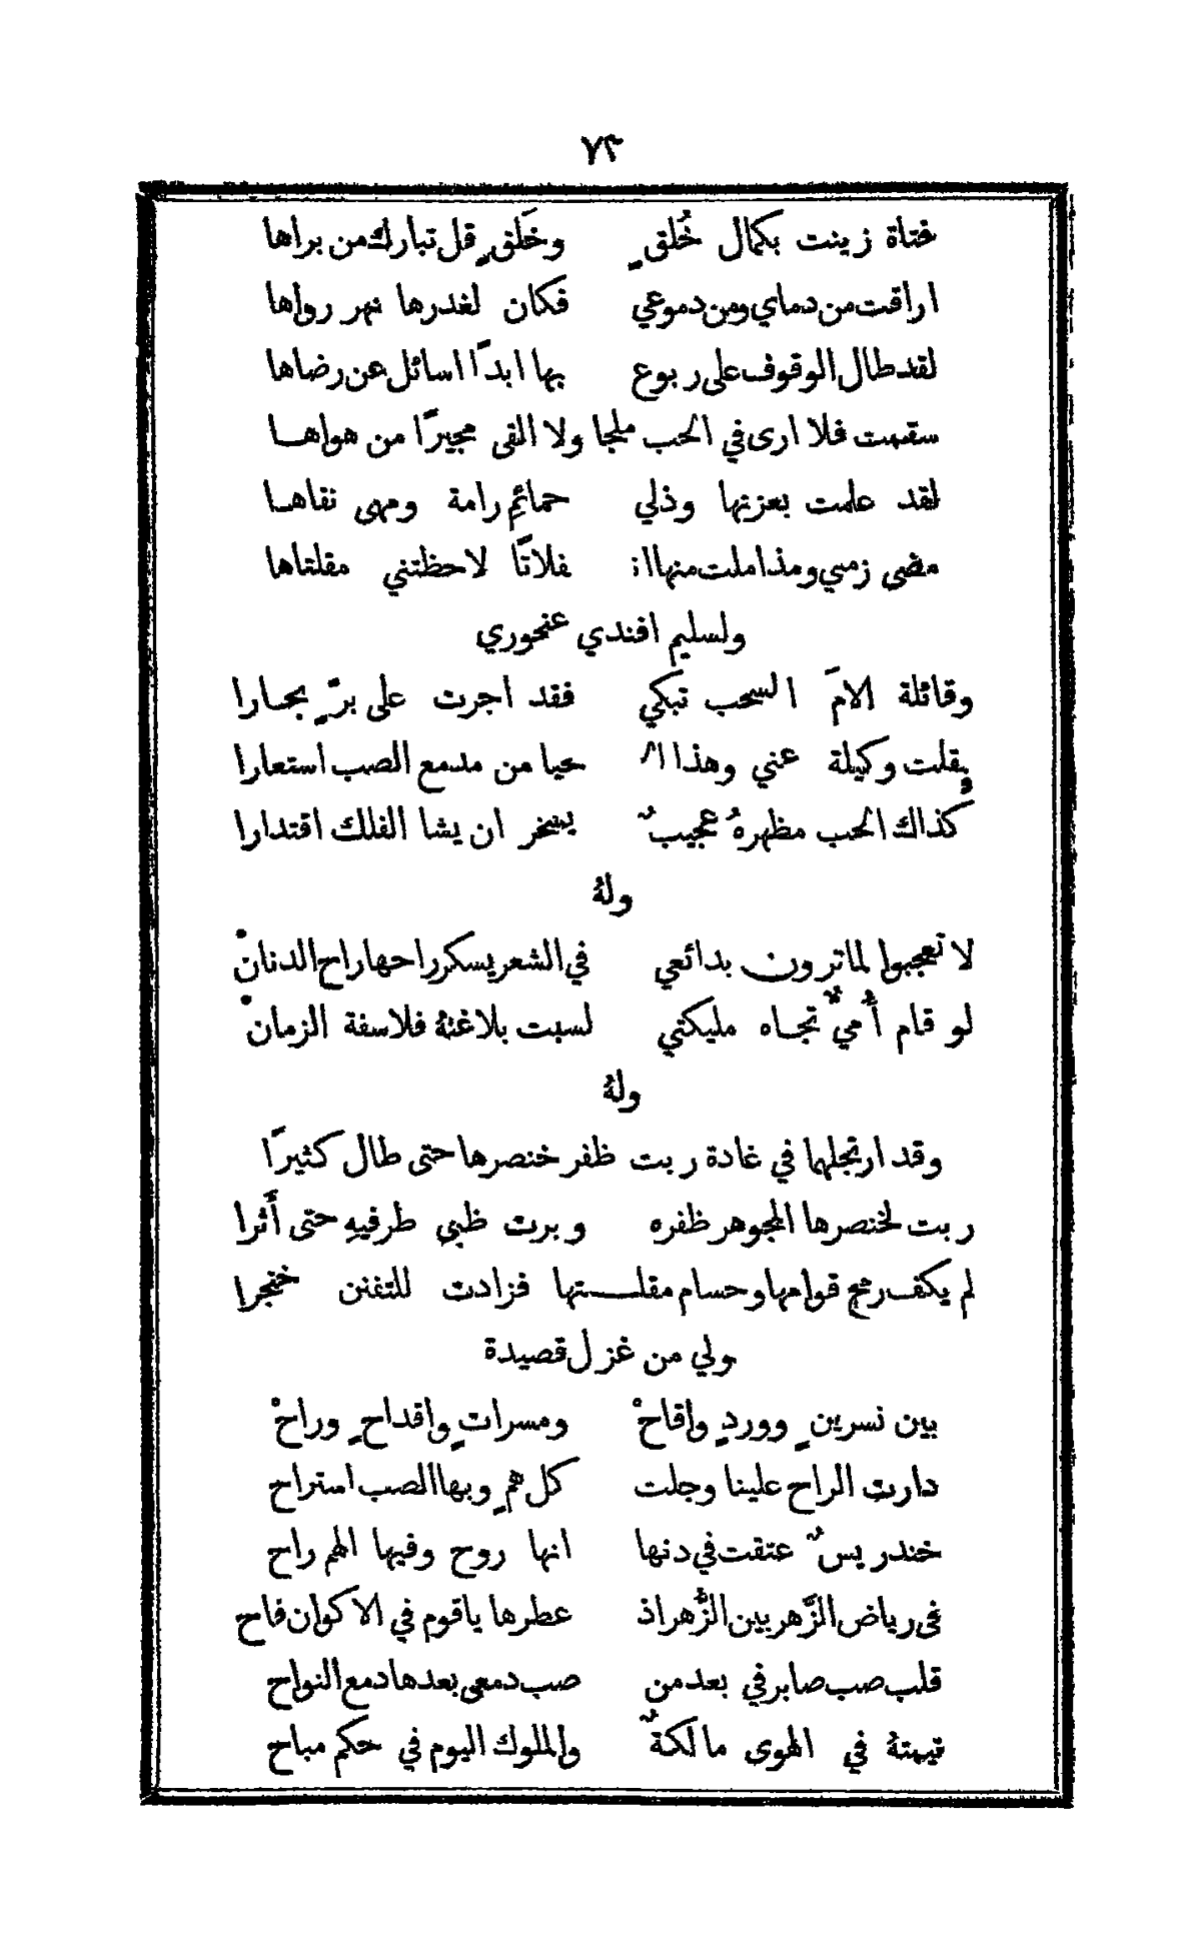 ٧٣
فتاة زينت بكمال خُلقٍ وخَلقٍ قل تبارك من براها
اراقت من دماي ومن دموعي فكان لغدرها نهر رواها
لقد طال الوقوف على ربوع بها ابدًا اسائل عن رضاها
سقمت فلا ارى في الحب ملجا ولا القى مجيرًا من هواها
لقد علمت بعزتها وذلي حمائم رامة ومهى نقاها
مضى زمني ومذ املت منها ال فلاتًا لاحظتني مقلتاها
ولسليم افندي عنحوري
وقائلة الامَ السحب تبكي فقد اجرت على برٍّ بحارا
فقلت وكيلة عني وهذا ال حيا من مدمع الصب استعارا
كذاك الحب مظهرهُ عجيبٌ يسخر ان يشا الفلك اقتدارا
ولهُ
لا تعجبوا لما ترون بدائعي في الشعر يسكر راحها راح الدنانْ
لو قام أُميٌّ تجاه مليكتي لسبت بلاغتهُ فلاسفة الزمانْ
ولهُ
وقد ارتجلها في غادة ربت ظفر خنصرها حتى طال كثيرًا
ربت لخنصرها المجوهر ظفره وبرت ظبي طرفيهِ حتى أَثرا
لم يكف رمح قوامها وحسام مقلتها فزادت للتفنن خنجرا
ولي من غزل قصيدة
بين نسرينٍ ووردٍ واقاحْ ومسراتٍ واقداحٍ وراحْ
دارت الراح علينا وجلت كل همٍ وبها الصب استراح
خندريسٌ عتقت في دنها انها روح وفيها الهم راح
في رياض الزَّهر بين الزُّهر اذ عطرها ياقوم في الاكوان فاح
قلب صب صابر في بعد من صب دمعي بعدها دمع النواح
تيمتهُ في الهوى مالكةٌ والملوك اليوم في حكم مباح